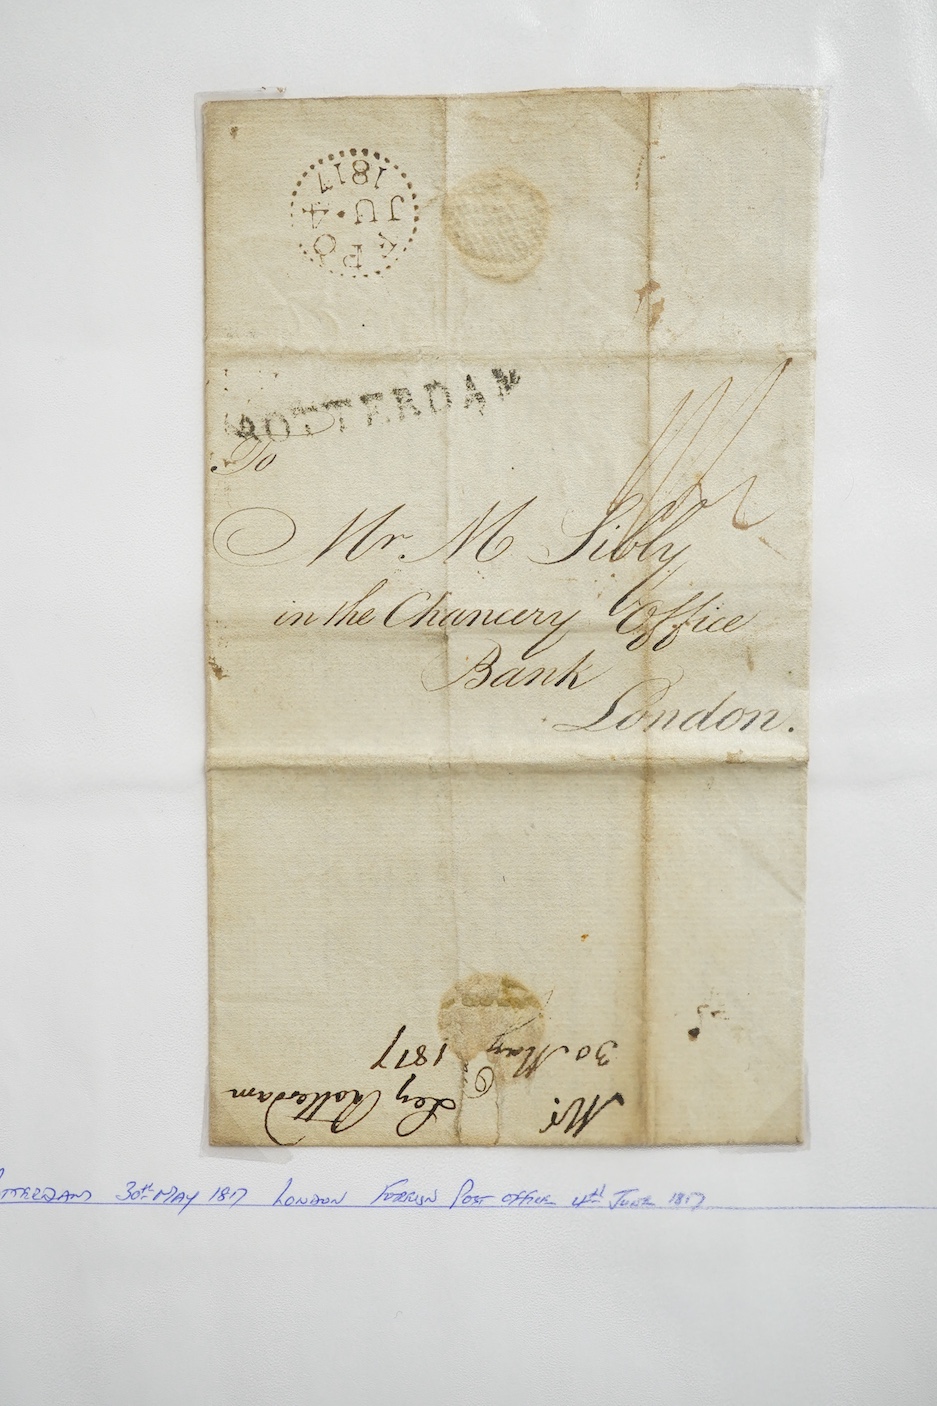 1817
JU·4
FPO
ROTTERDAM
To
Mr. M Sibly
in the Chancery Office
Bank
London.
Mr. C Ley Rotterdam
30 May 1817
ROTTERDAM 30th MAY 1817 LONDON FOREIGN POST OFFICE 4th JUNE 1817